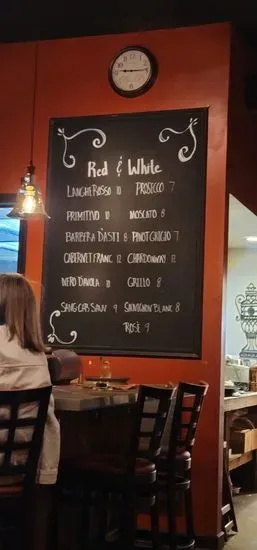 Red & White
LANGHE ROSSO 10 PROSECCO 7
PRIMITIVO 10 MOSCATO 8
BARBERA D'ASTI 8 PINOT GRIGIO 7
CABERNET FRANC 12 CHARDONNAY 12
NERO D'AVOLA 10 GRILLO 8
CAB SAUV 9 SAUVIGNON BLANC 8
ROSÉ 9